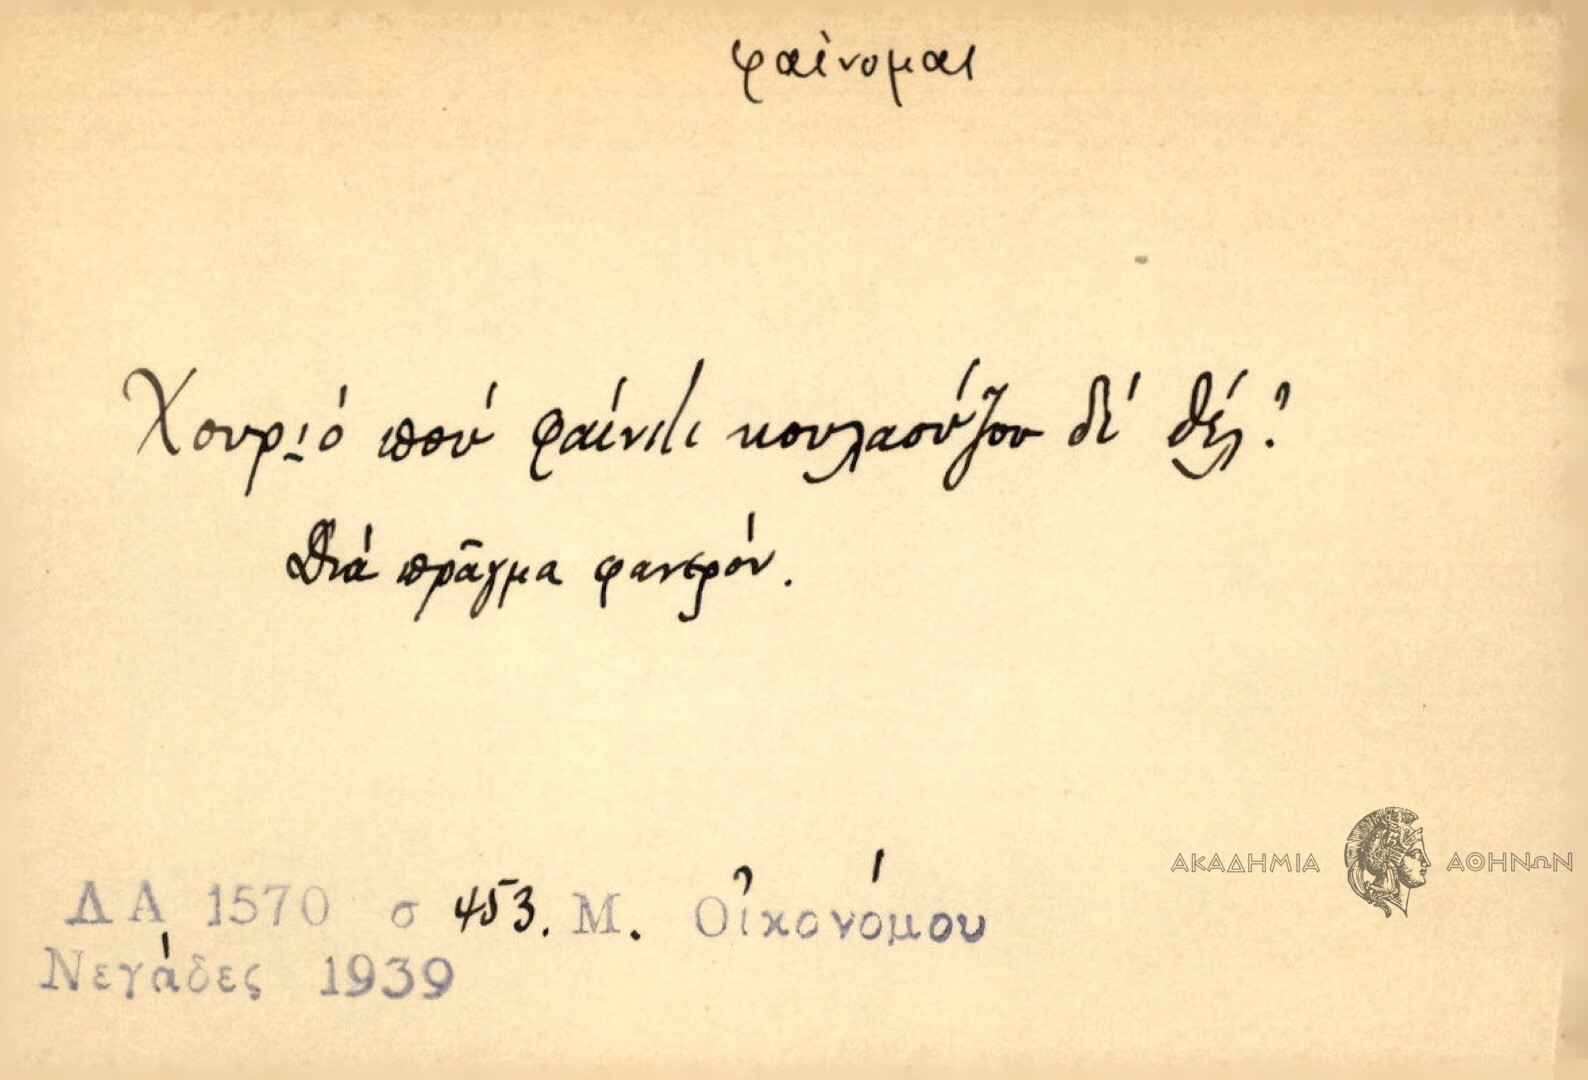 φαίνομαι
Χουρι̮ό ποὺ φαίνιτι κουλαούζου δέ θέλ'.
Διά πρᾶγμα φανερόν.
ΔΑ 1570 σ 453. Μ. Οἰκονόμου
Νεγάδες 1939
ΑΚΑΔΗΜΙΑ ΑΘΗΝΩΝ